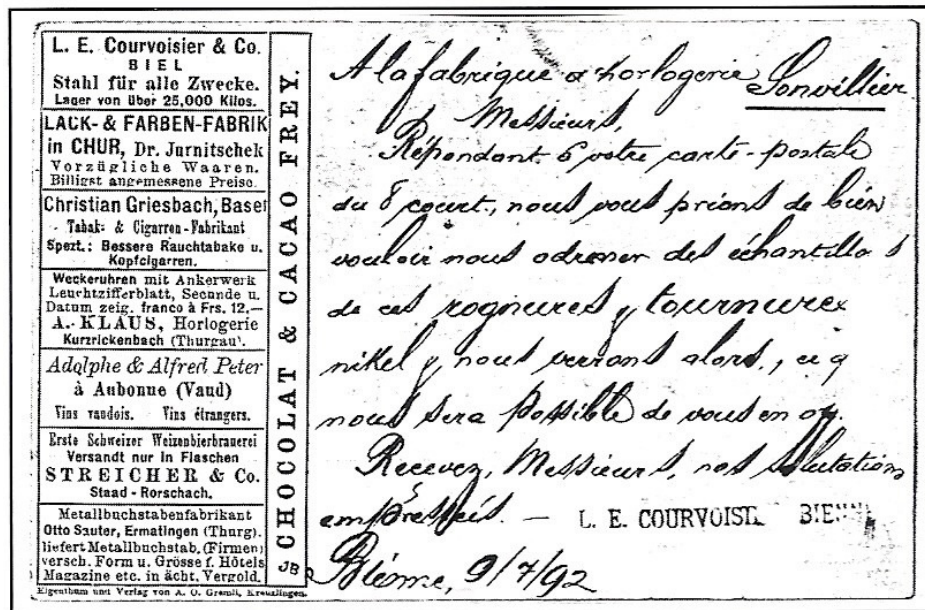 L. E. Courvoisier & Co.
BIEL
Stahl für alle Zwecke.
Lager von über 25,000 Kilos.
LACK- & FARBEN-FABRIK
in CHUR, Dr. Jurnitschek
Vorzügliche Waaren.
Billigst angemessene Preise.
Christian Griesbach, Basel
Tabak- & Cigarren-Fabrikant
Spezt.: Bessere Rauchtabake u.
Kopfcigarren.
Weckeruhren mit Ankerwerk
Leuchtzifferblatt, Secunde u.
Datum zeig. franco à Frs. 12,—
A. KLAUS, Horlogerie
Kurzrickenbach (Thurgau).
Adolphe & Alfred Peter
à Aubonne (Vaud)
Vins vaudois. Vins étrangers.
Erste Schweizer Weizenbierbrauerei
Versandt nur in Flaschen
STREICHER & Co.
Staad - Rorschach.
Metallbuchstabenfabrikant
Otto Sauter, Ermatingen (Thurg).
liefert Metallbuchstab. (Firmen)
versch. Form u. Grösse f. Hôtels
Magazine etc. in ächt. Vergold.
Eigenthum und Verlag von A. O. Gremli, Kreuzlingen.
CHOCOLAT & CACAO FREY.
JB
A la fabrique d'horlogerie Sonvillier
Messieurs,
Répondant à votre carte-postale
du 8 court., nous vous prions de bien
vouloir nous adresser des échantillos
de ces rognures & tournures
nikel & nous verrons alors, ce q
nous sera possible de vous en
Recevez, Messieurs, nos salutations
empressées. — L. E. COURVOISI BIENN
Bienne, 9/7/92